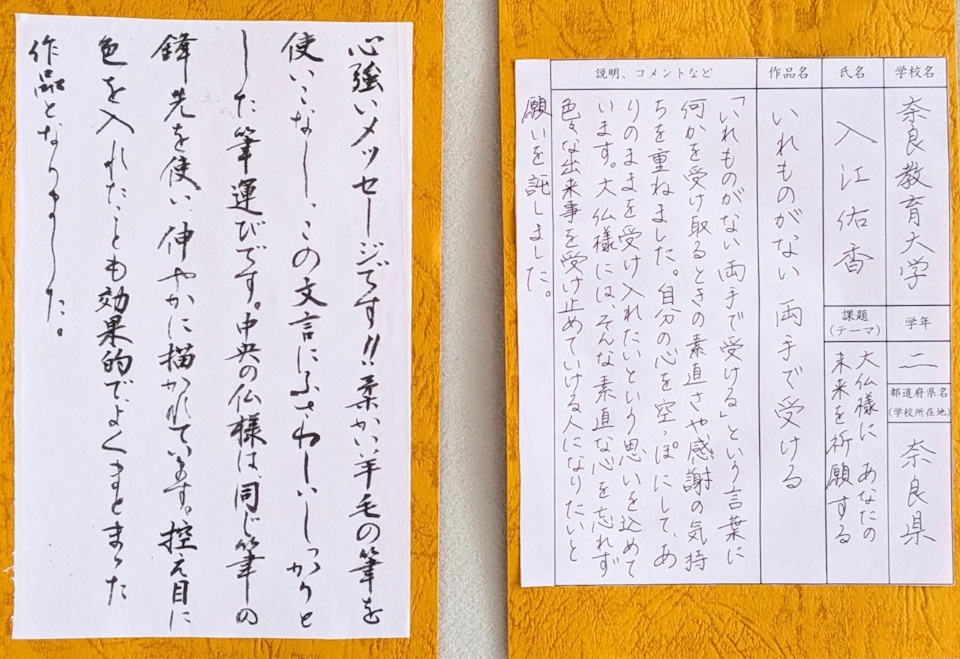 学校名
奈良教育大学
学年
二
都道府県名
(学校所在地)
奈良県
氏名
入江佑香
課題
(テーマ)
大仏様に あなたの
未来を祈願する
作品名
いれものがない 両手で受ける
説明、コメントなど
「いれものがない両手で受ける」という言葉に
何かを受け取るときの素直さや感謝の気持
ちを重ねました。自分の心を空っぽにして、あ
りのままを受け入れたいという思いを込めて
います。大仏様には、そんな素直な心を忘れず
色々な出来事を受け止めていける人になりたいと
願いを託しました。
心強いメッセージです!!柔かい羊毛の筆を
使いこなし、この文言にふさわしいしっかりと
した筆運びです。中央の仏様は、同じ筆の
鋒先を使い、伸やかに描かれています。控え目に
色を入れたことも効果的で、よくまとまった
作品となりました。